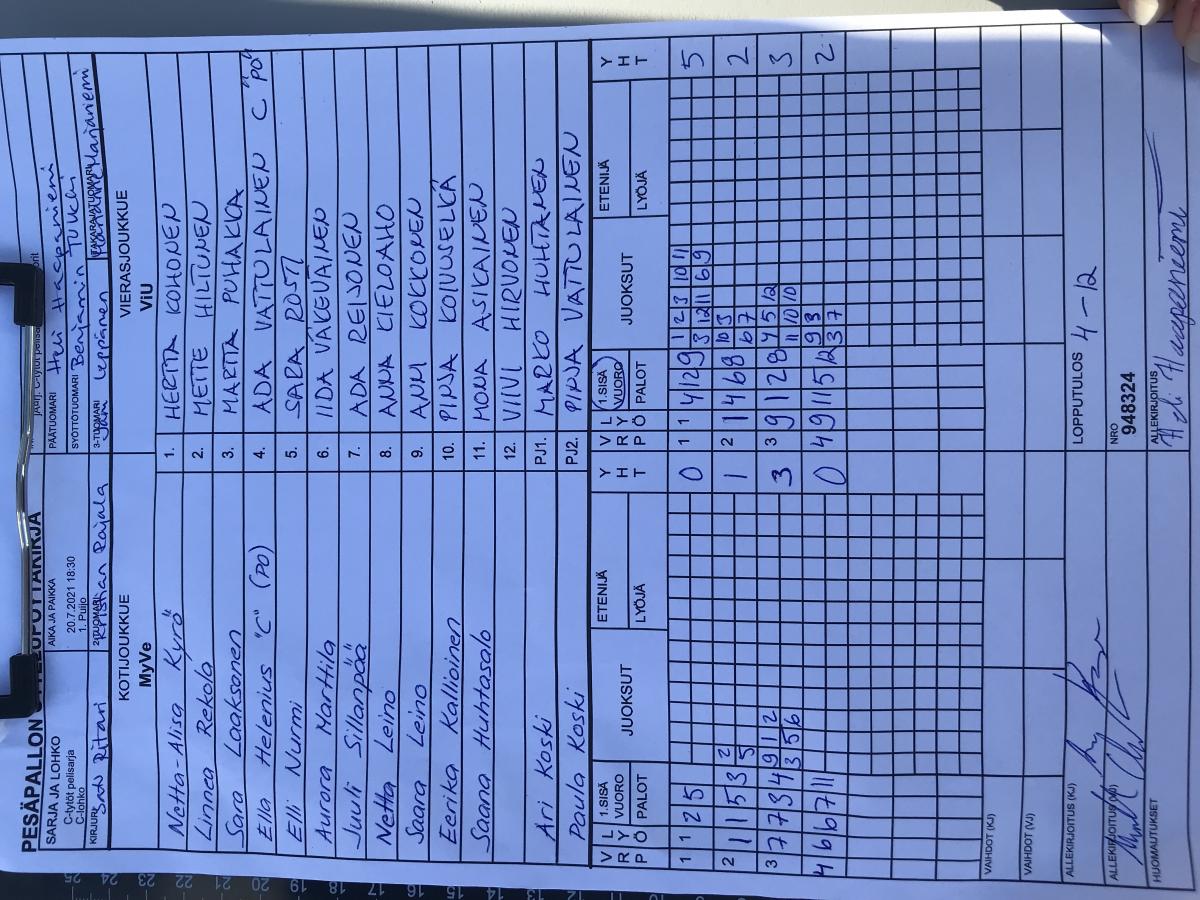 PESÄPALLON
SARJA JA LOHKO
C-tytöt pelisarja
C-lohko
AIKA JA PAIKKA
20.7.2021 18:30
1. Puijo
PÄÄTUOMARI Heli Haapaniemi
SYÖTTÖTUOMARI Benjamin Tukki
KIRJURI Satu Ritari
2-TUOMARI Kristian Rajala
3-TUOMARI Jani Leppänen
TAKARAJATUOMARI Harjaniemi
KOTIJOUKKUE
MyVe
VIERASJOUKKUE
ViU
Netta-Alisa Kyrö 1. HERTTA KOHONEN
Linnea Rekola 2. METTE HILTUNEN
Sara Laaksonen 3. MARTTA PUHAKKA
Ella Helenius "C" (PO) 4. ADA VATTULAINEN C "PO"
Elli Nurmi 5. SARA ROSTI
Aurora Marttila 6. IIDA VÄKEVÄINEN
Juuli Sillanpää 7. ADA REIJONEN
Netta Leino 8. ANNA CIELOAHO
Saara Leino 9. ANNI KOKKONEN
Eerika Kallioinen 10. PINJA KOIVUSELKÄ
Saana Huhtasalo 11. MONA ASIKAINEN
12. VIIVI HIRVONEN
Ari Koski PJ1. MARKO HUHTANEN
Paula Koski PJ2. PINJA VATTULAINEN
V R P L Y Ö 1.SISÄ VUORO PALOT JUOKSUT ETENIJÄ LYÖJÄ Y H T V R P L Y Ö 1.SISÄ VUORO PALOT JUOKSUT ETENIJÄ LYÖJÄ Y H T
1 1 2 5 0 1 1 4 12 9 1 2 3 10 11 5
3 12 11 6 9
2 1 1 5 3 2 1 2 1 4 6 8 10 3 2
5 6 7
3 7 7 3 4 9 1 2 3 3 9 12 8 4 5 12 3
3 5 6 11 10 10
4 6 6 7 11 0 4 9 11 5 12 9 3 2
3 7
VAIHDOT (KJ)
VAIHDOT (VJ)
ALLEKIRJOITUS (KJ)
LOPPUTULOS 4-12
ALLEKIRJOITUS (VJ)
NRO
948324
HUOMAUTUKSET
ALLEKIRJOITUS
Heli Haapaniemi